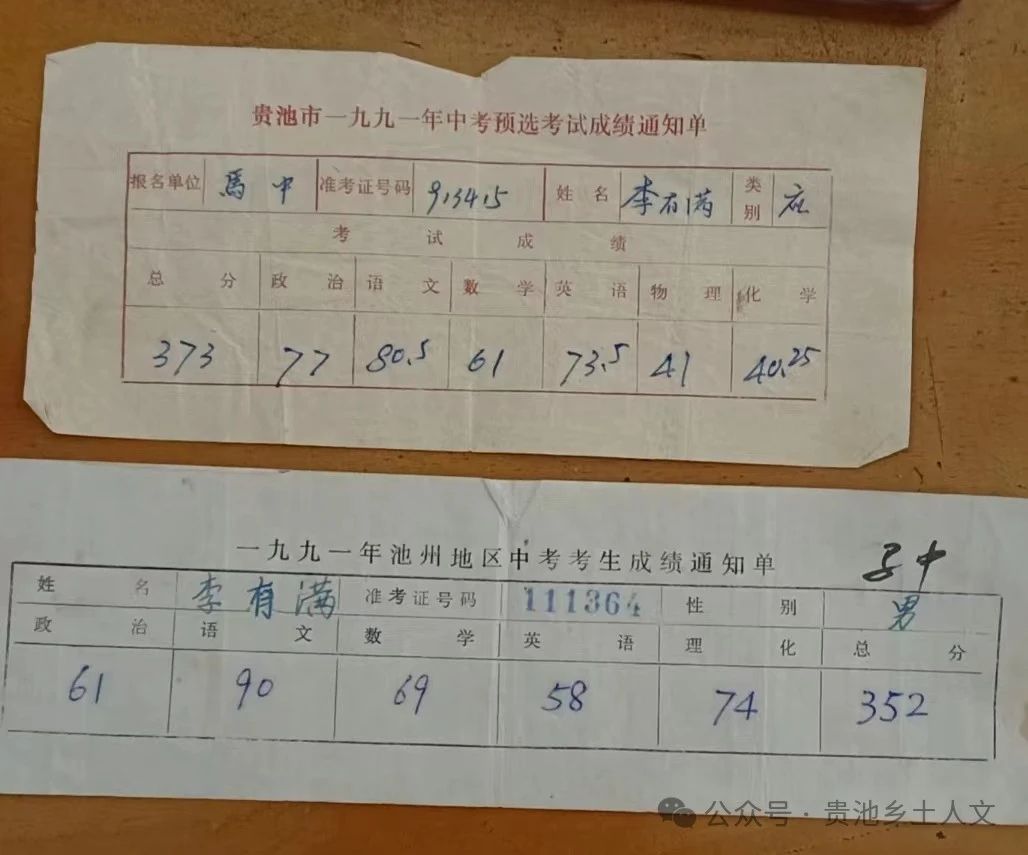 贵池市一九九一年中考预选考试成绩通知单
报名单位 馬中 准考证号码 913415 姓名 李有满 类别 应
考试成绩
总分 政治 语文 数学 英语 物理 化学
373 77 80.5 61 73.5 41 40.25
一九九一年池州地区中考考生成绩通知单
姓名 李有满 准考证号码 111364 性别 男
政治 语文 数学 英语 理化 总分
61 90 69 58 74 352
公众号·贵池乡土人文